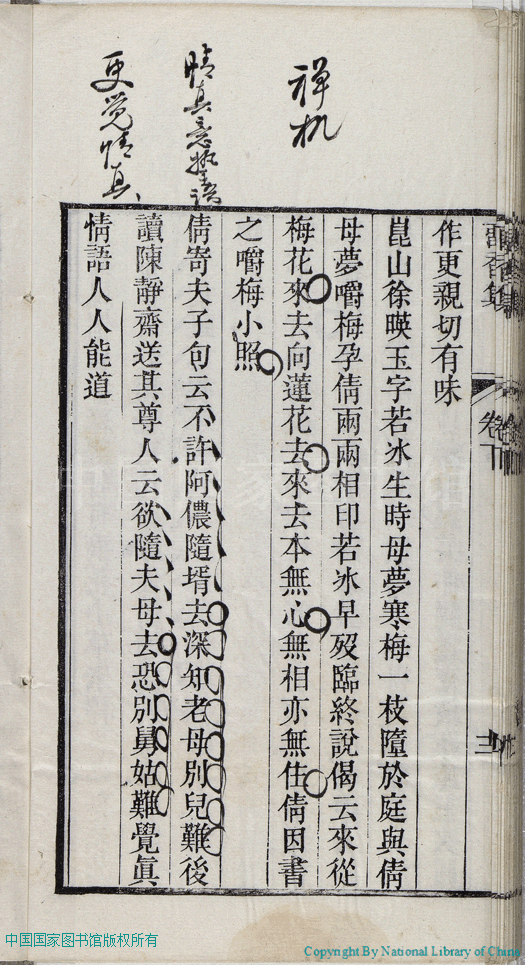 禅机
情真意挚語
更觉情真
作更親切有味
崑山徐暎玉字若冰生時母夢寒梅一枝墮於庭與倩
母夢嚼梅孕倩兩兩相印若冰早歿臨終說偈云來從
梅花來去向蓮花去來去本無心無相亦無住倩因書
之嚼梅小照
倩寄夫子句云不許阿儂隨壻去深知老母別兒難後
讀陳靜齋送其尊人云欲隨夫母去恐別舅姑難覺眞
情語人人能道
卷下
中国国家图书馆版权所有
Copyright By National Library of China